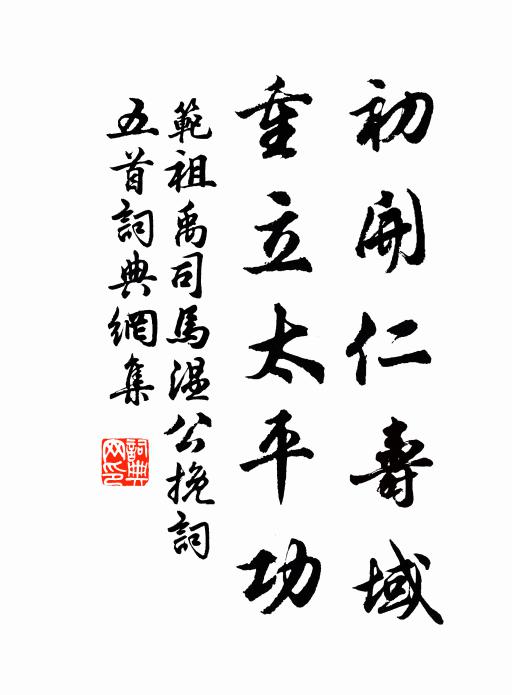 初開仁壽域
重立太平功
範祖禹司馬溫公挽詞
五首詞典網集
詞典
网印